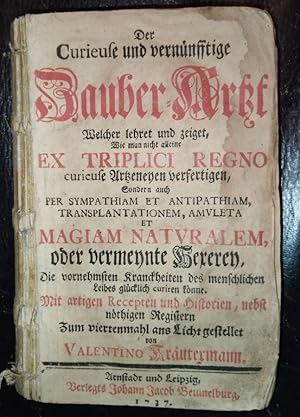 Der
Curieuse und vernünfftige
Zauber-Artzt
Welcher lehret und zeiget,
Wie man nicht alleine
EX TRIPLICI REGNO
curieuse Artzeneyen verfertigen,
Sondern auch
PER SYMPATHIAM ET ANTIPATHIAM,
TRANSPLANTATIONEM, AMVLETA
ET
MAGIAM NATVRALEM,
oder vermeynte Hexerey,
Die vornehmsten Kranckheiten des menschlichen
Leibes glücklich curiren könne.
Mit artigen Recepten und Historien, nebst
nöthigen Registern
Zum viertenmahl ans Licht gestellet
von
VALENTINO Kräutermann.
Arnstadt und Leipzig,
Verlegts Johann Jacob Beumelburg,
1737.